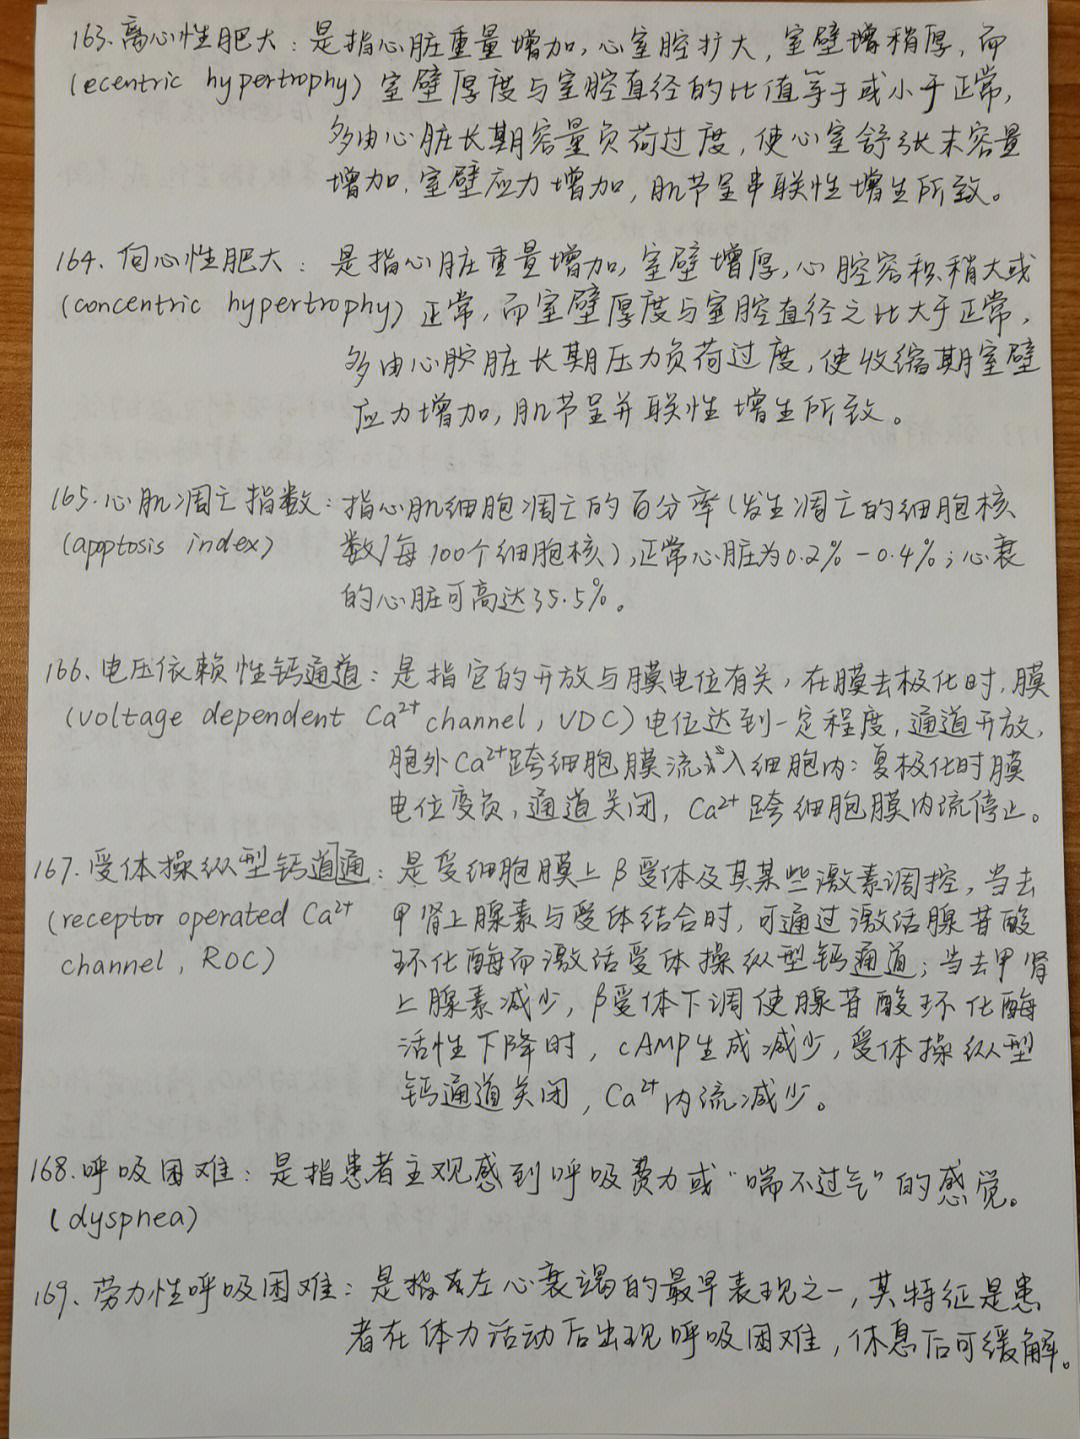 163. 离心性肥大：是指心脏重量增加，心室腔扩大，室壁增稍厚，而
(ecentric hypertrophy) 室壁厚度与室腔直径的比值等于或小于正常，
多由心脏长期容量负荷过度，使心室舒张末容量
增加，室壁应力增加，肌节呈串联性增生所致。
164. 向心性肥大：是指心脏重量增加，室壁增厚，心腔容积稍大或
(concentric hypertrophy) 正常，而室壁厚度与室腔直径之比大于正常，
多由心腔脏长期压力负荷过度，使收缩期室壁
应力增加，肌节呈并联性增生所致。
165. 心肌凋亡指数：指心肌细胞凋亡的百分率(发生凋亡的细胞核
(apoptosis index) 数/每100个细胞核)，正常心脏为0.2%-0.4%；心衰
的心脏可高达35.5%。
166. 电压依赖性钙通道：是指它的开放与膜电位有关，在膜去极化时，膜
(voltage dependent Ca²⁺ channel, VDC) 电位达到一定程度，通道开放，
胞外Ca²⁺跨细胞膜流入细胞内：复极化时膜
电位变负，通道关闭，Ca²⁺跨细胞膜内流停止。
167. 受体操纵型钙道通：是受细胞膜上β受体及其某些激素调控，当去
(receptor operated Ca²⁺ 甲肾上腺素与受体结合时，可通过激活腺苷酸
channel, ROC) 环化酶而激活受体操纵型钙通道；当去甲肾
上腺素减少，β受体下调使腺苷酸环化酶
活性下降时，cAMP生成减少，受体操纵型
钙通道关闭，Ca²⁺内流减少。
168. 呼吸困难：是指患者主观感到呼吸费力或“喘不过气”的感觉。
(dyspnea)
169. 劳力性呼吸困难：是指左心衰竭的最早表现之一，其特征是患
者在体力活动后出现呼吸困难，休息后可缓解。